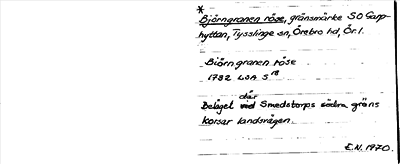 *
Björngranen röse, gränsmärke SO Garp-
hyttan, Tysslinge sn, Örebro hd, Ör.l.
Biörngranen röse
1782 LSA S 18
där
Beläget vid Smedstorps södra gräns
korsar landsvägen.
E.N. 1970.